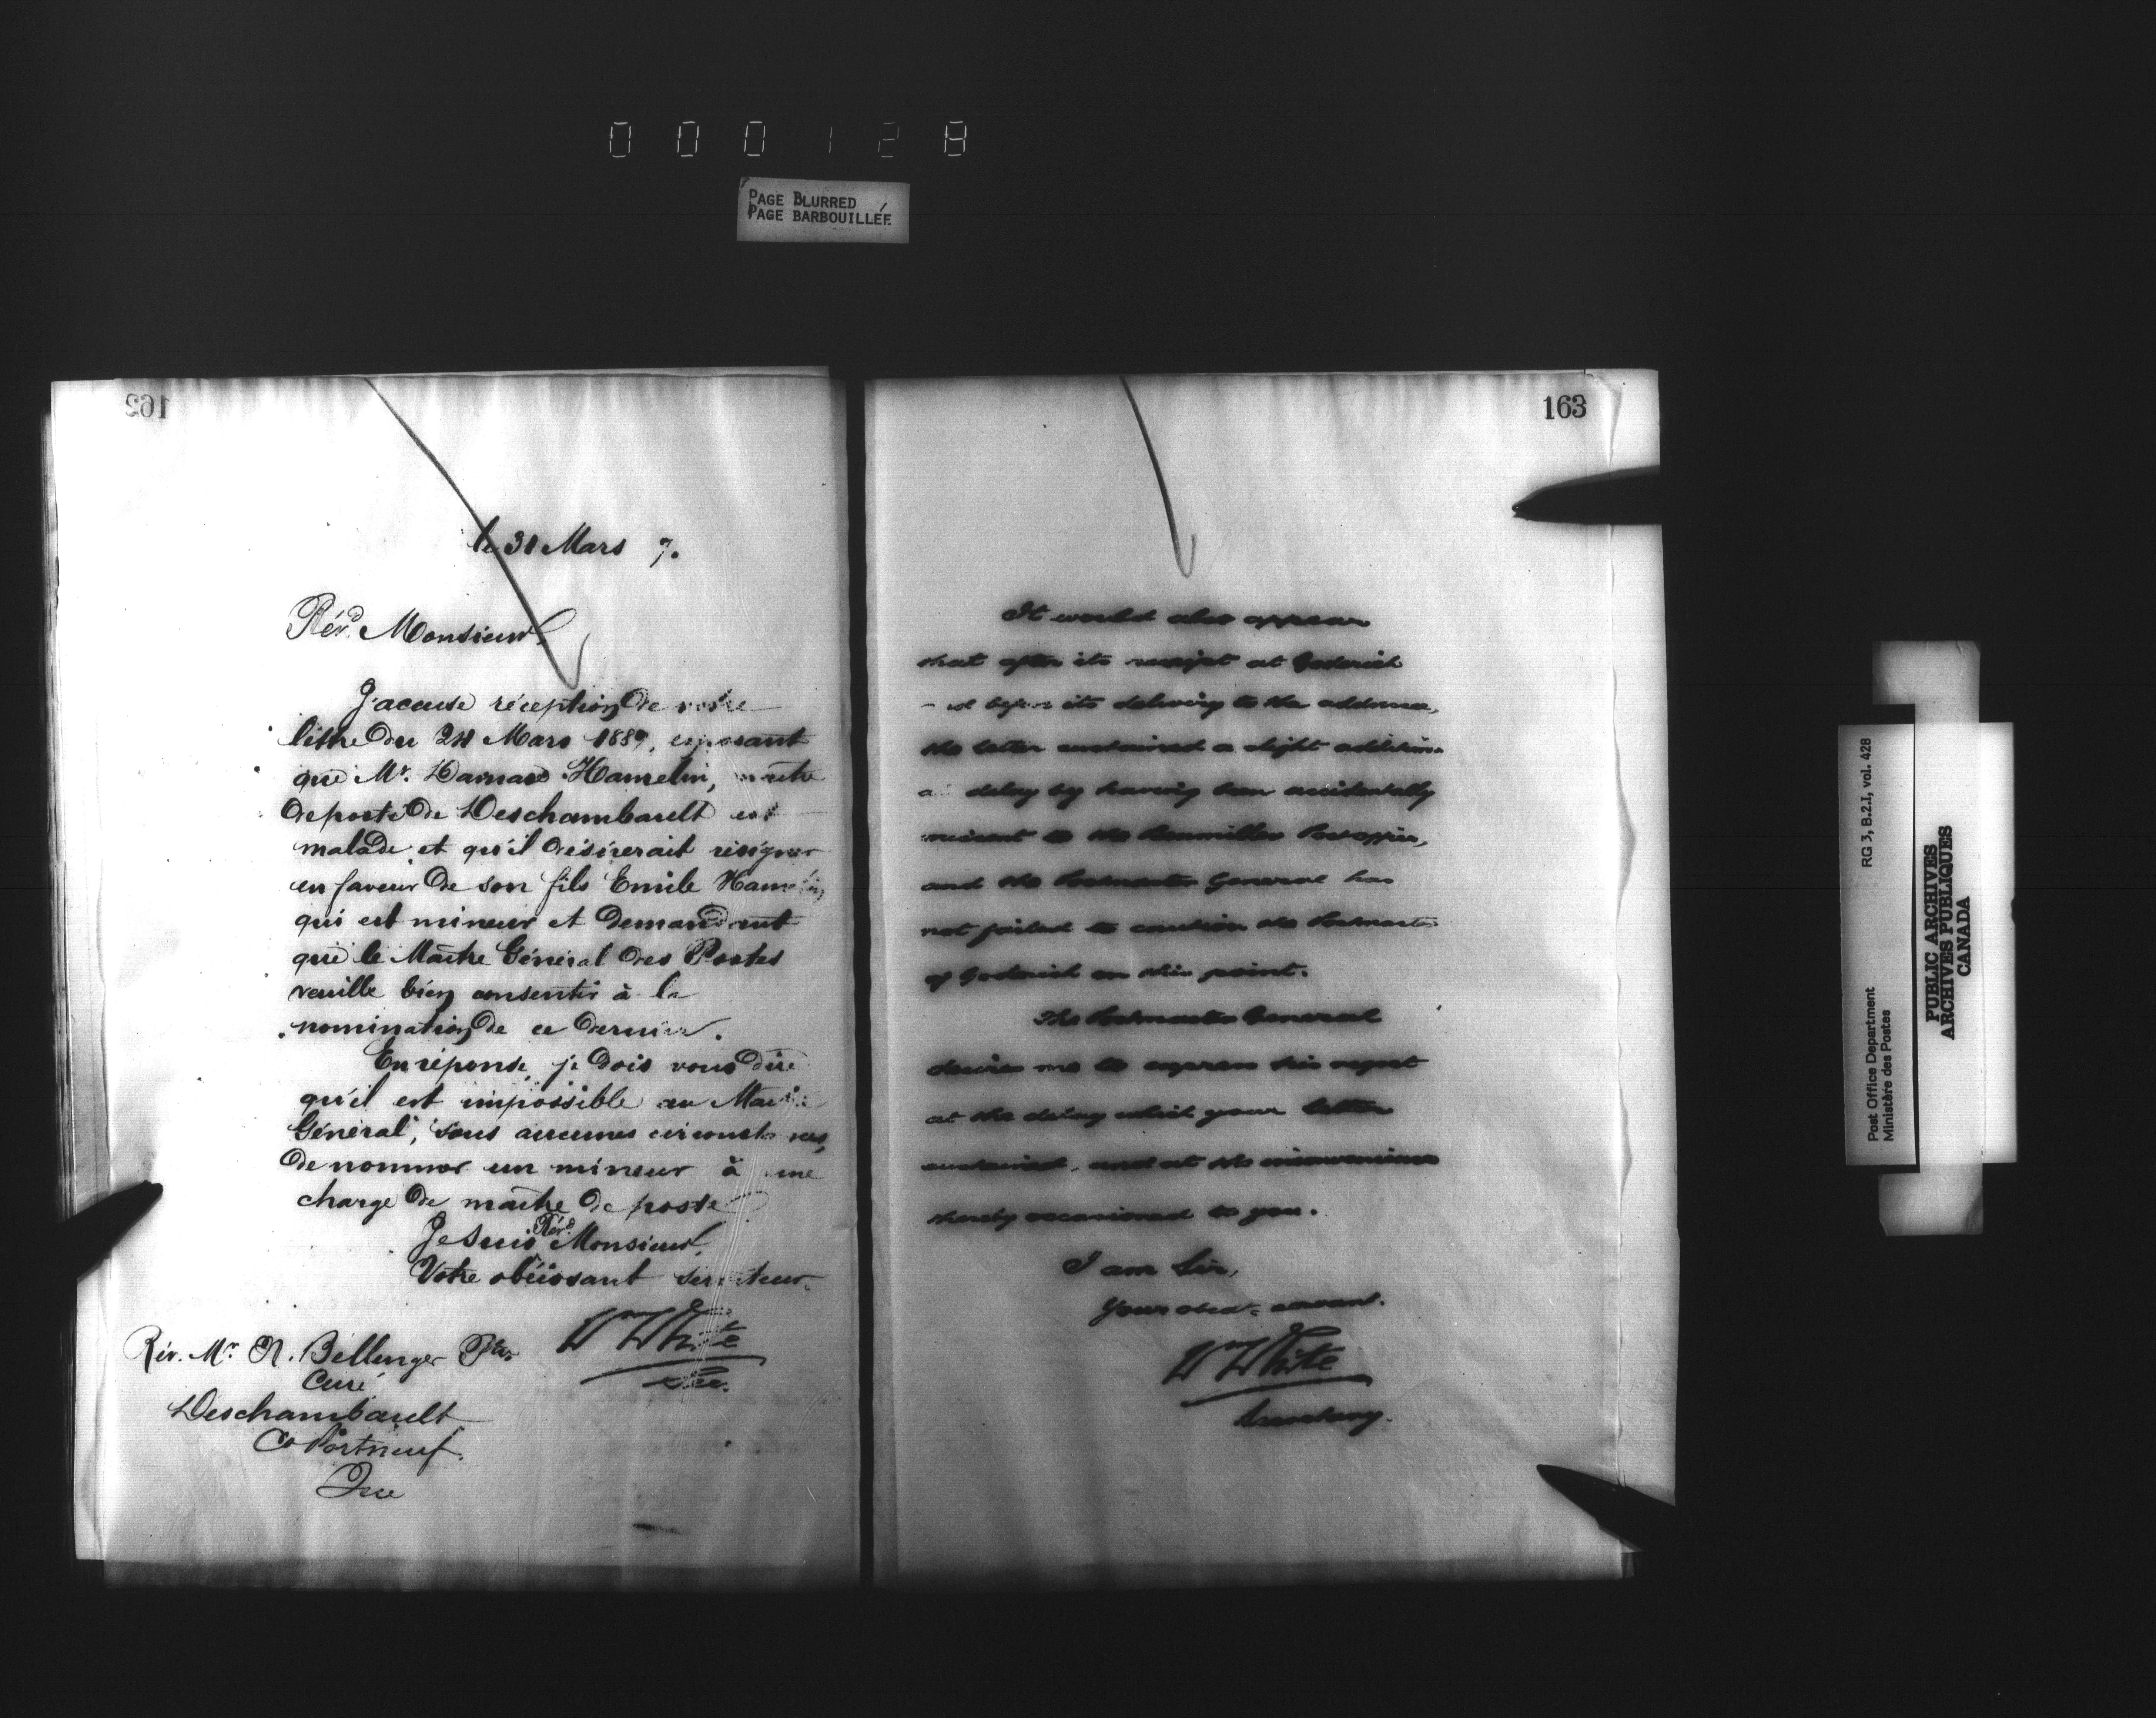 000128
PAGE BLURRED
PAGE BARBOUILLÉE
162
le 31 Mars 7.
Révd. Monsieur,
J'accuse réception de votre
lettre du 24 Mars 1887, exposant
que Mr. Hamelin, maître
de poste de Deschambault est
malade et qu'il désirerait résigner
en faveur de son fils Emile Hamelin
qui est mineur et demandant
que le Maître Général des Postes
veuille bien consentir à la
nomination de ce dernier.
En réponse, je dois vous dire
qu'il est impossible au Maître
Général, sous aucunes circonstances,
de nommer un mineur à une
charge de maître de poste.
Je suis Révd. Monsieur,
Votre obéissant serviteur
Wm White
Sec.
Rév. Mr. N. Bellenger Ptre.
Curé
Deschambault
Co Portneuf
Que
163
It would also appear
that after its receipt at Goderich
and before its delivery to the addressee,
the letter sustained a slight addition-
al delay by having been accidentally
missent to the Benmiller Post office,
and the Postmaster General has
not failed to caution the Postmaster
of Goderich on this point.
The Postmaster General
desires me to express his regret
at the delay which your letter
sustained, and at the inconvenience
thereby occasioned to you.
I am Sir,
Your obedt. servant.
Wm White
Secretary.
Post Office Department RG 3, B.2.I, vol. 428
Ministère des Postes
PUBLIC ARCHIVES
ARCHIVES PUBLIQUES
CANADA